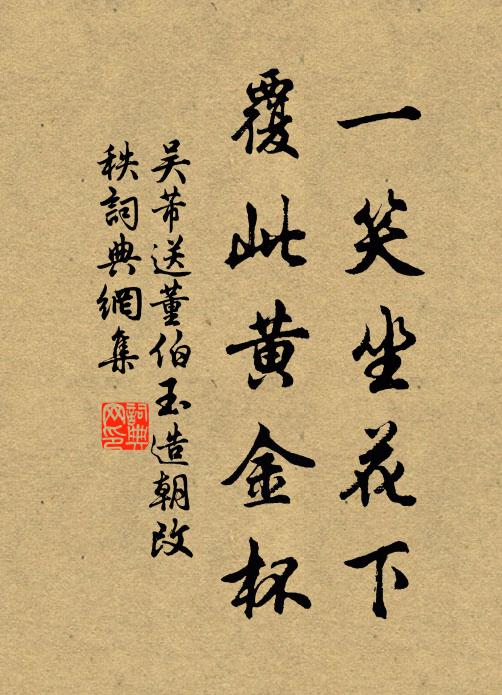 一笑坐花下
覆此黄金杯
吴芾送董伯玉造朝改
秩詞典網集
詞典网印